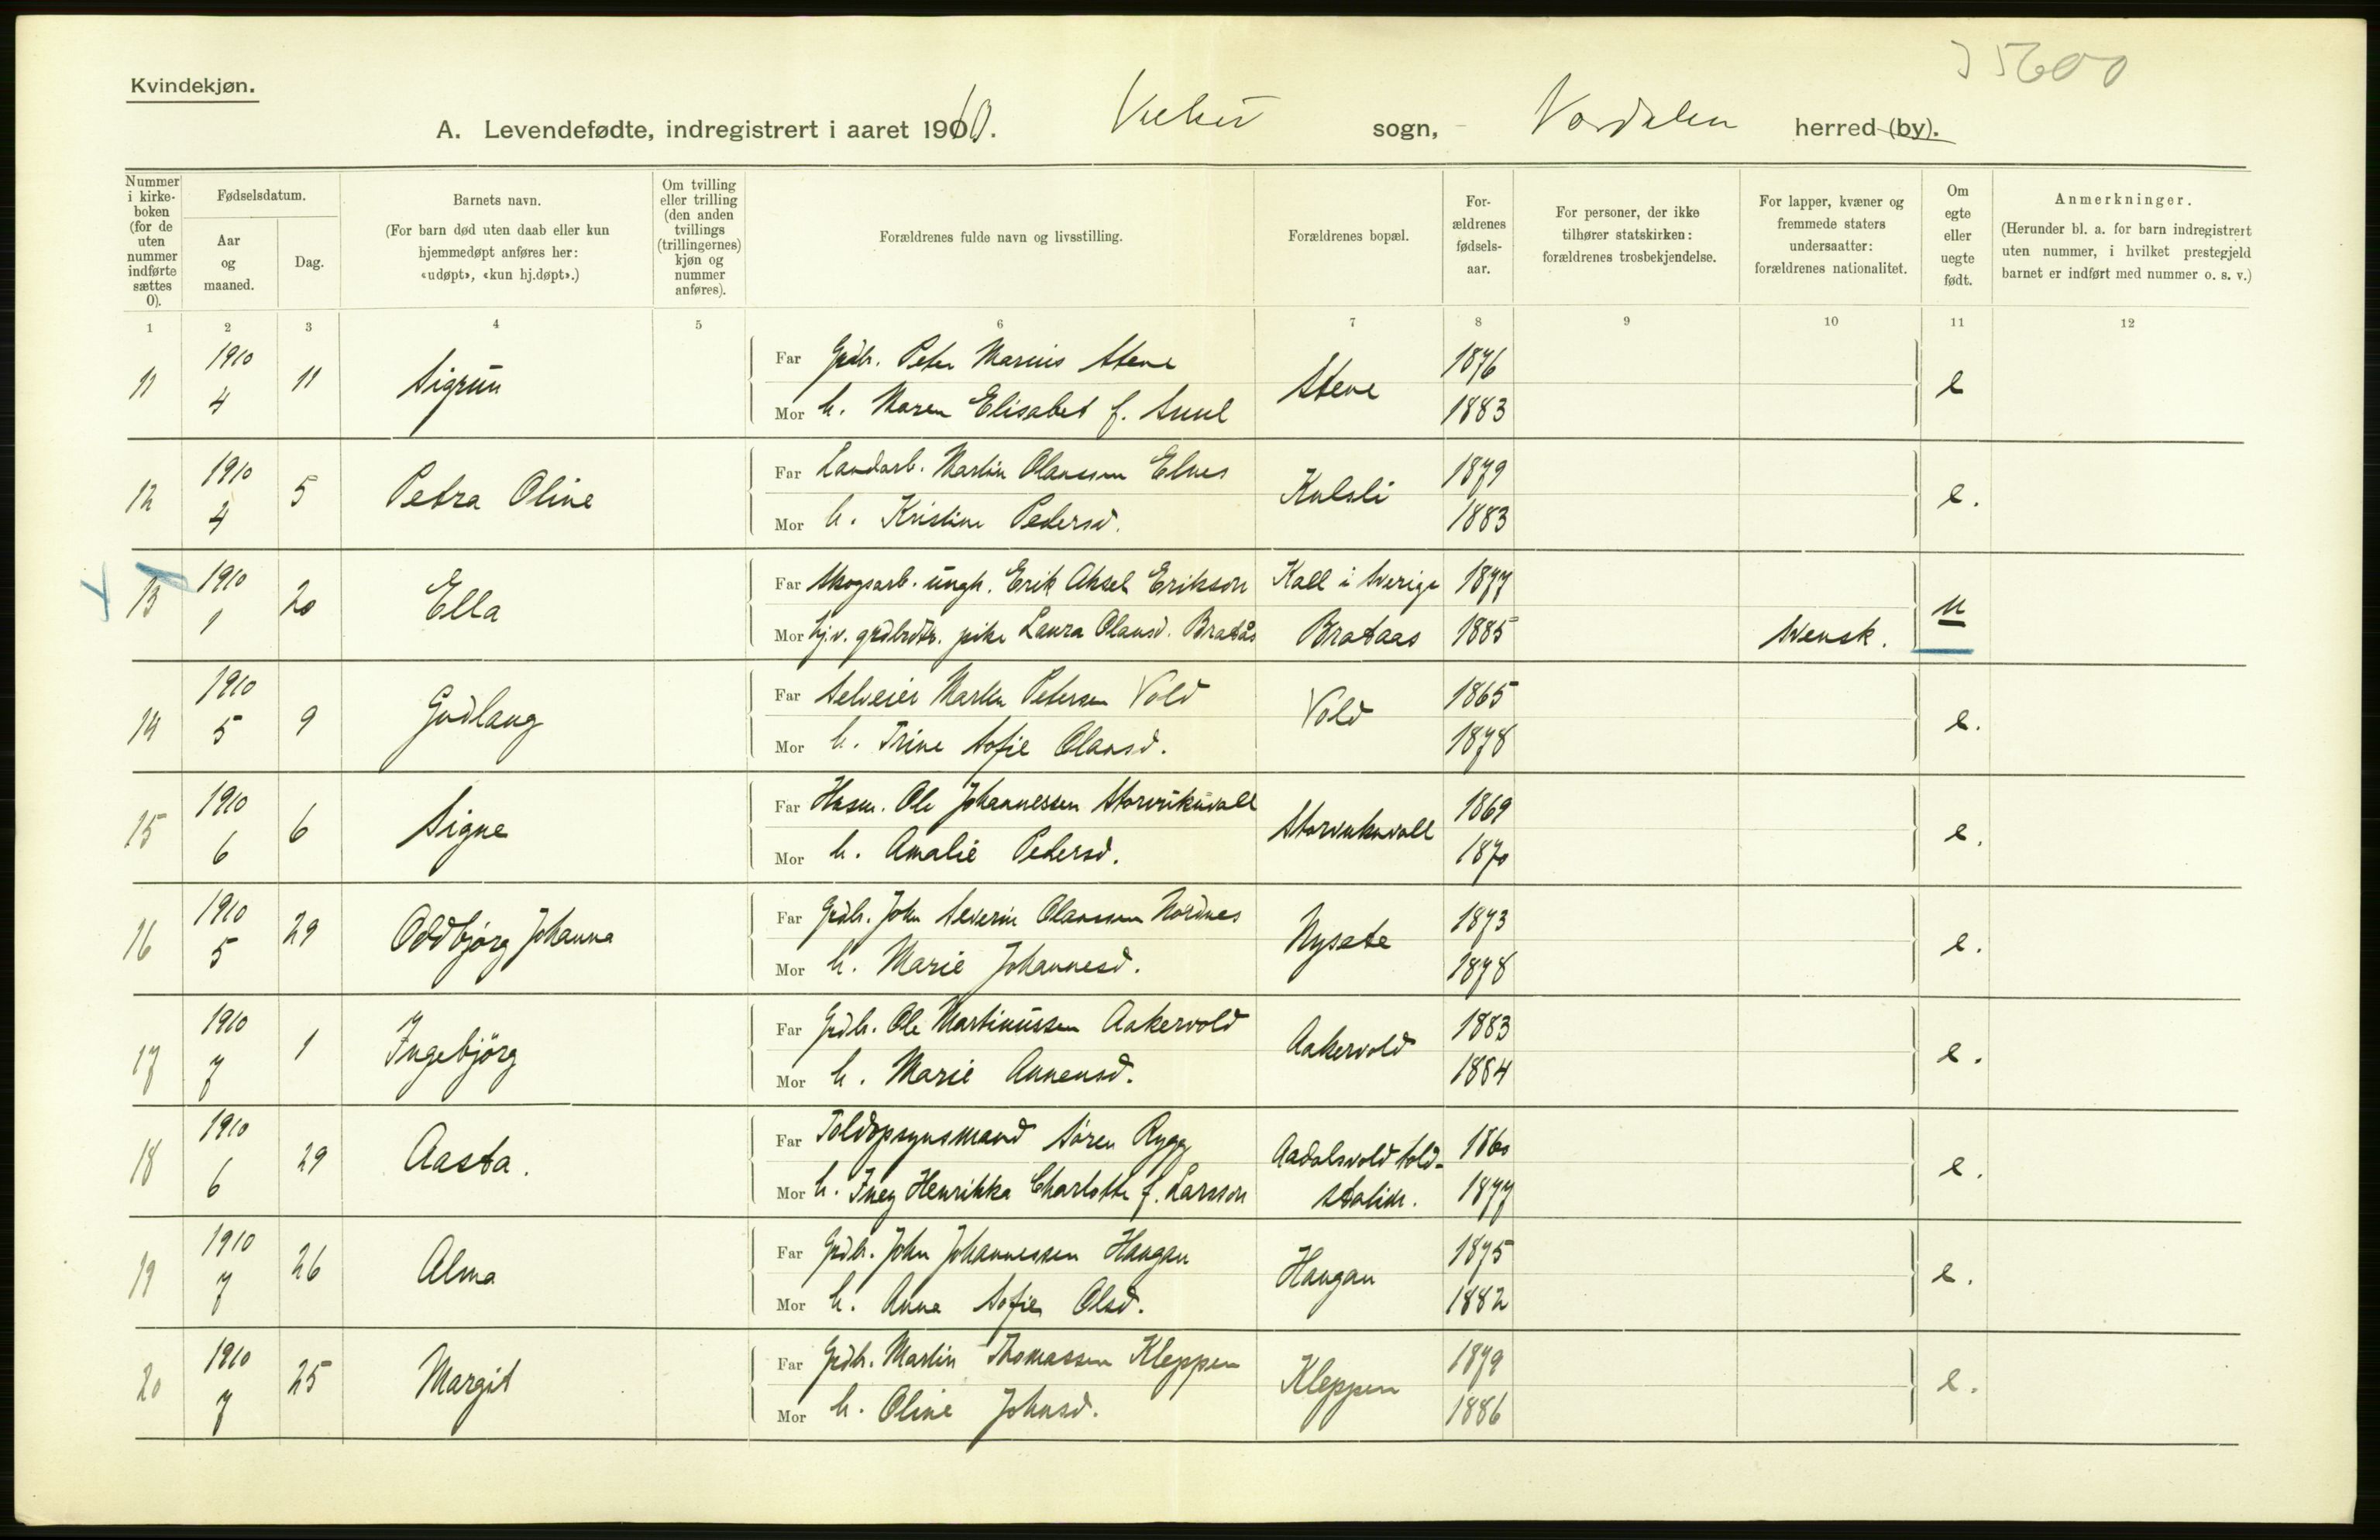 35600
Kvindekjøn.
A. Levendefødte, indregistrert i aaret 1910. Vuku sogn, Værdalen herred (by).
Nummer i kirkeboken (for de uten nummer indførte sættes 0).
Fødselsdatum.
Aar og maaned.
Dag.
Barnets navn.
(For barn død uten daab eller kun hjemmedøpt anføres her: «udøpt», «kun hj.døpt».)
Om tvilling eller trilling (den anden tvillings (trillingernes) kjøn og nummer anføres).
Forældrenes fulde navn og livsstilling.
Forældrenes bopæl.
Forældrenes fødselsaar.
For personer, der ikke tilhører statskirken: forældrenes trosbekjendelse.
For lapper, kvæner og fremmede staters undersaatter: forældrenes nationalitet.
Om egte eller uegte født.
Anmerkninger.
(Herunder bl. a. for barn indregistrert uten nummer, i hvilket prestegjeld barnet er indført med nummer o. s. v.)
1 2 3 4 5 6 7 8 9 10 11 12
11 1910 4 11 Sigrun Far Grdb. Peter Marius Stene Stene 1876 e
Mor h. Maren Elisabet f. Suul 1883
12 1910 4 5 Petra Oline Far Landarb. Martin Olaussen Elnes Kulsli 1879 e.
Mor h. Kristine Pedersd. 1883
13 1910 1 20 Ella Far Skogsarb. ungk. Erik Aksel Erikson Kall i Sverige 1877 u
Mor hj.v. grdbrdtr. pike Laura Olausd. Bratås Brataas 1885 svensk.
14 1910 5 9 Gudlaug Far Selveier Martin Petersen Vold Vold 1865 e.
Mor h. Trine Sofie Olausd. 1878
15 1910 6 6 Signe Far Husm. Ole Johannessen Storvukuvald Storvukuvall 1869 e.
Mor h. Amalie Pedersd. 1870
16 1910 5 29 Oddbjørg Johanna Far Grdb. John Severin Olaussen Nordnes Nysete 1873 e.
Mor h. Marie Johannesd. 1878
17 1910 7 1 Ingebjörg Far Grdb. Ole Martinussen Aakervold Aakervold 1883 e.
Mor h. Marie Annensd. 1884
18 1910 6 29 Aasta. Far Toldopsynsmand Sören Rygg Aadalsvold told- 1860 e.
Mor h. Iney Henrikka Charlotte f. Larsson station. 1877
19 1910 7 26 Alma Far Grdb. John Johannessen Haugan Haugan 1875 e.
Mor h. Anna Sofie Olsd. 1882
20 1910 7 25 Margit Far Grdb. Martin Thomassen Kleppen Kleppen 1879 e.
Mor h. Oline Johnsd. 1886